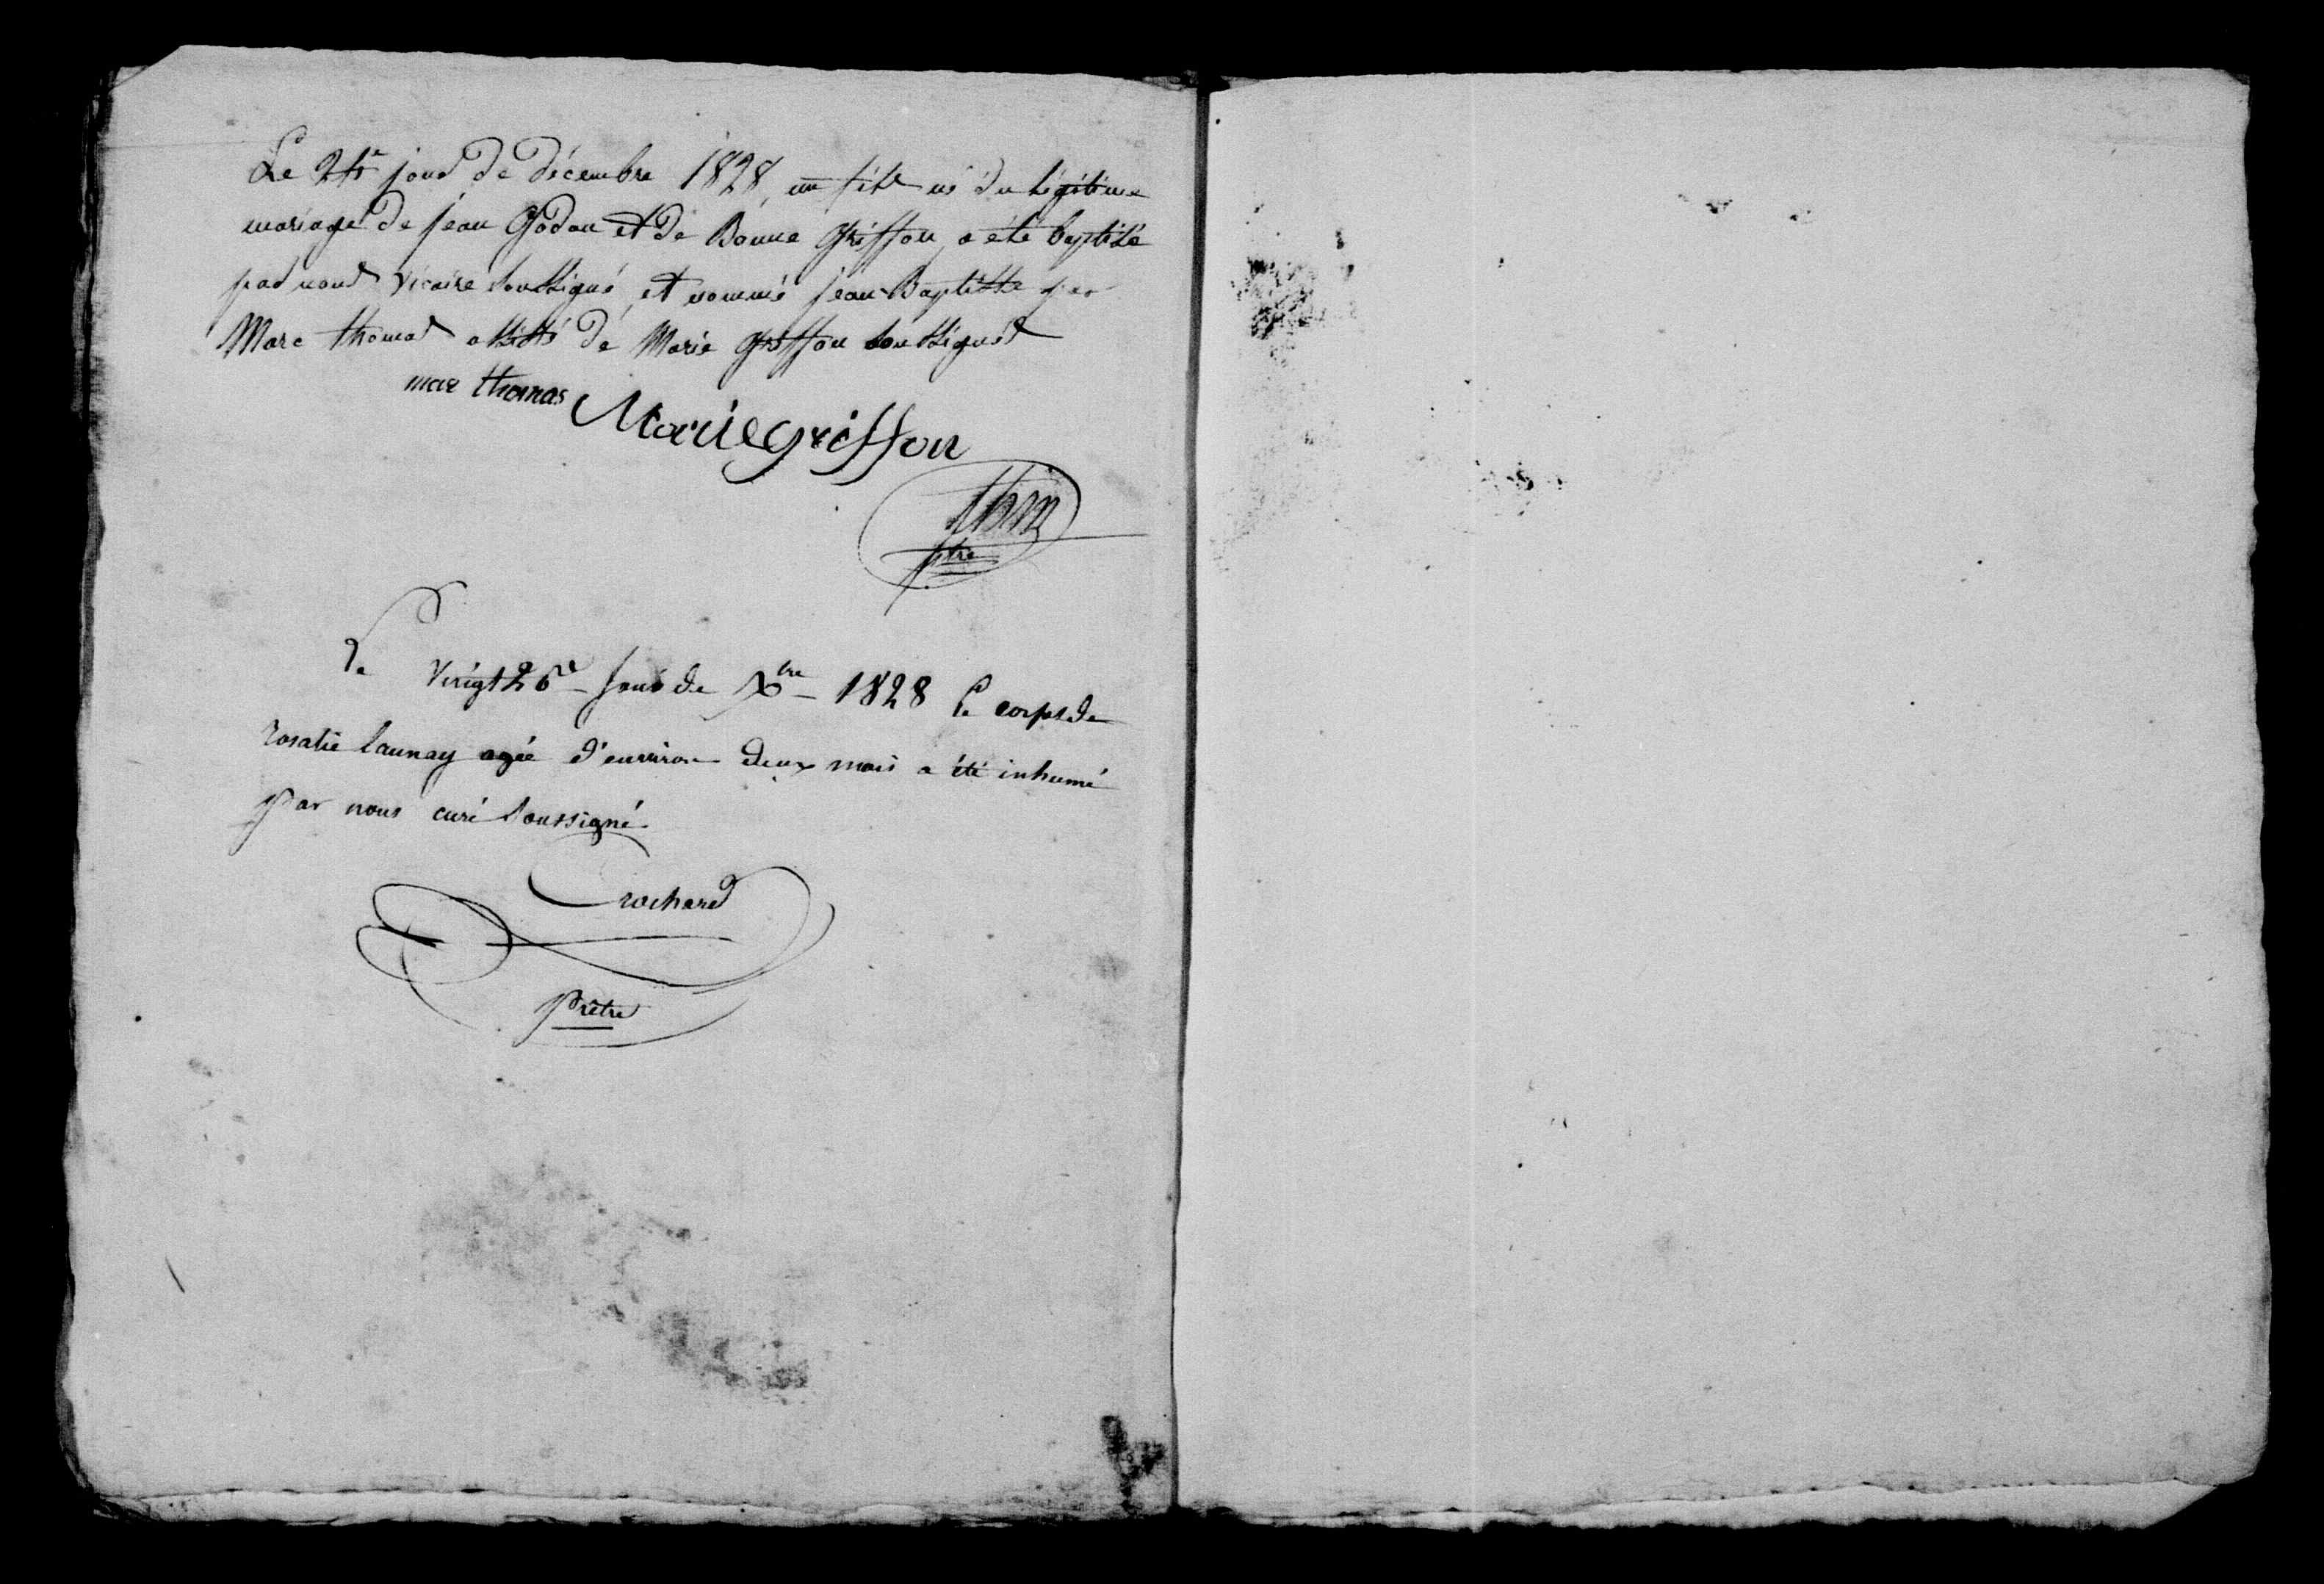 Le 24e jour de décembre 1828, un fils né du légitime
mariage de jean Godou et de Bonne Griffon, a été baptisé
par nous vicaire soussigné, et nommé jean-Baptiste par
Marc thomas assisté de Marie Griffon soussignés
marc thomas Marie griffon
ptre
Le Vingt 26e jour de Xbre 1828 le corps de
rosalie launay agée d'environ deux mois a été inhumé
par nous curé soussigné.
Crochard
prêtre